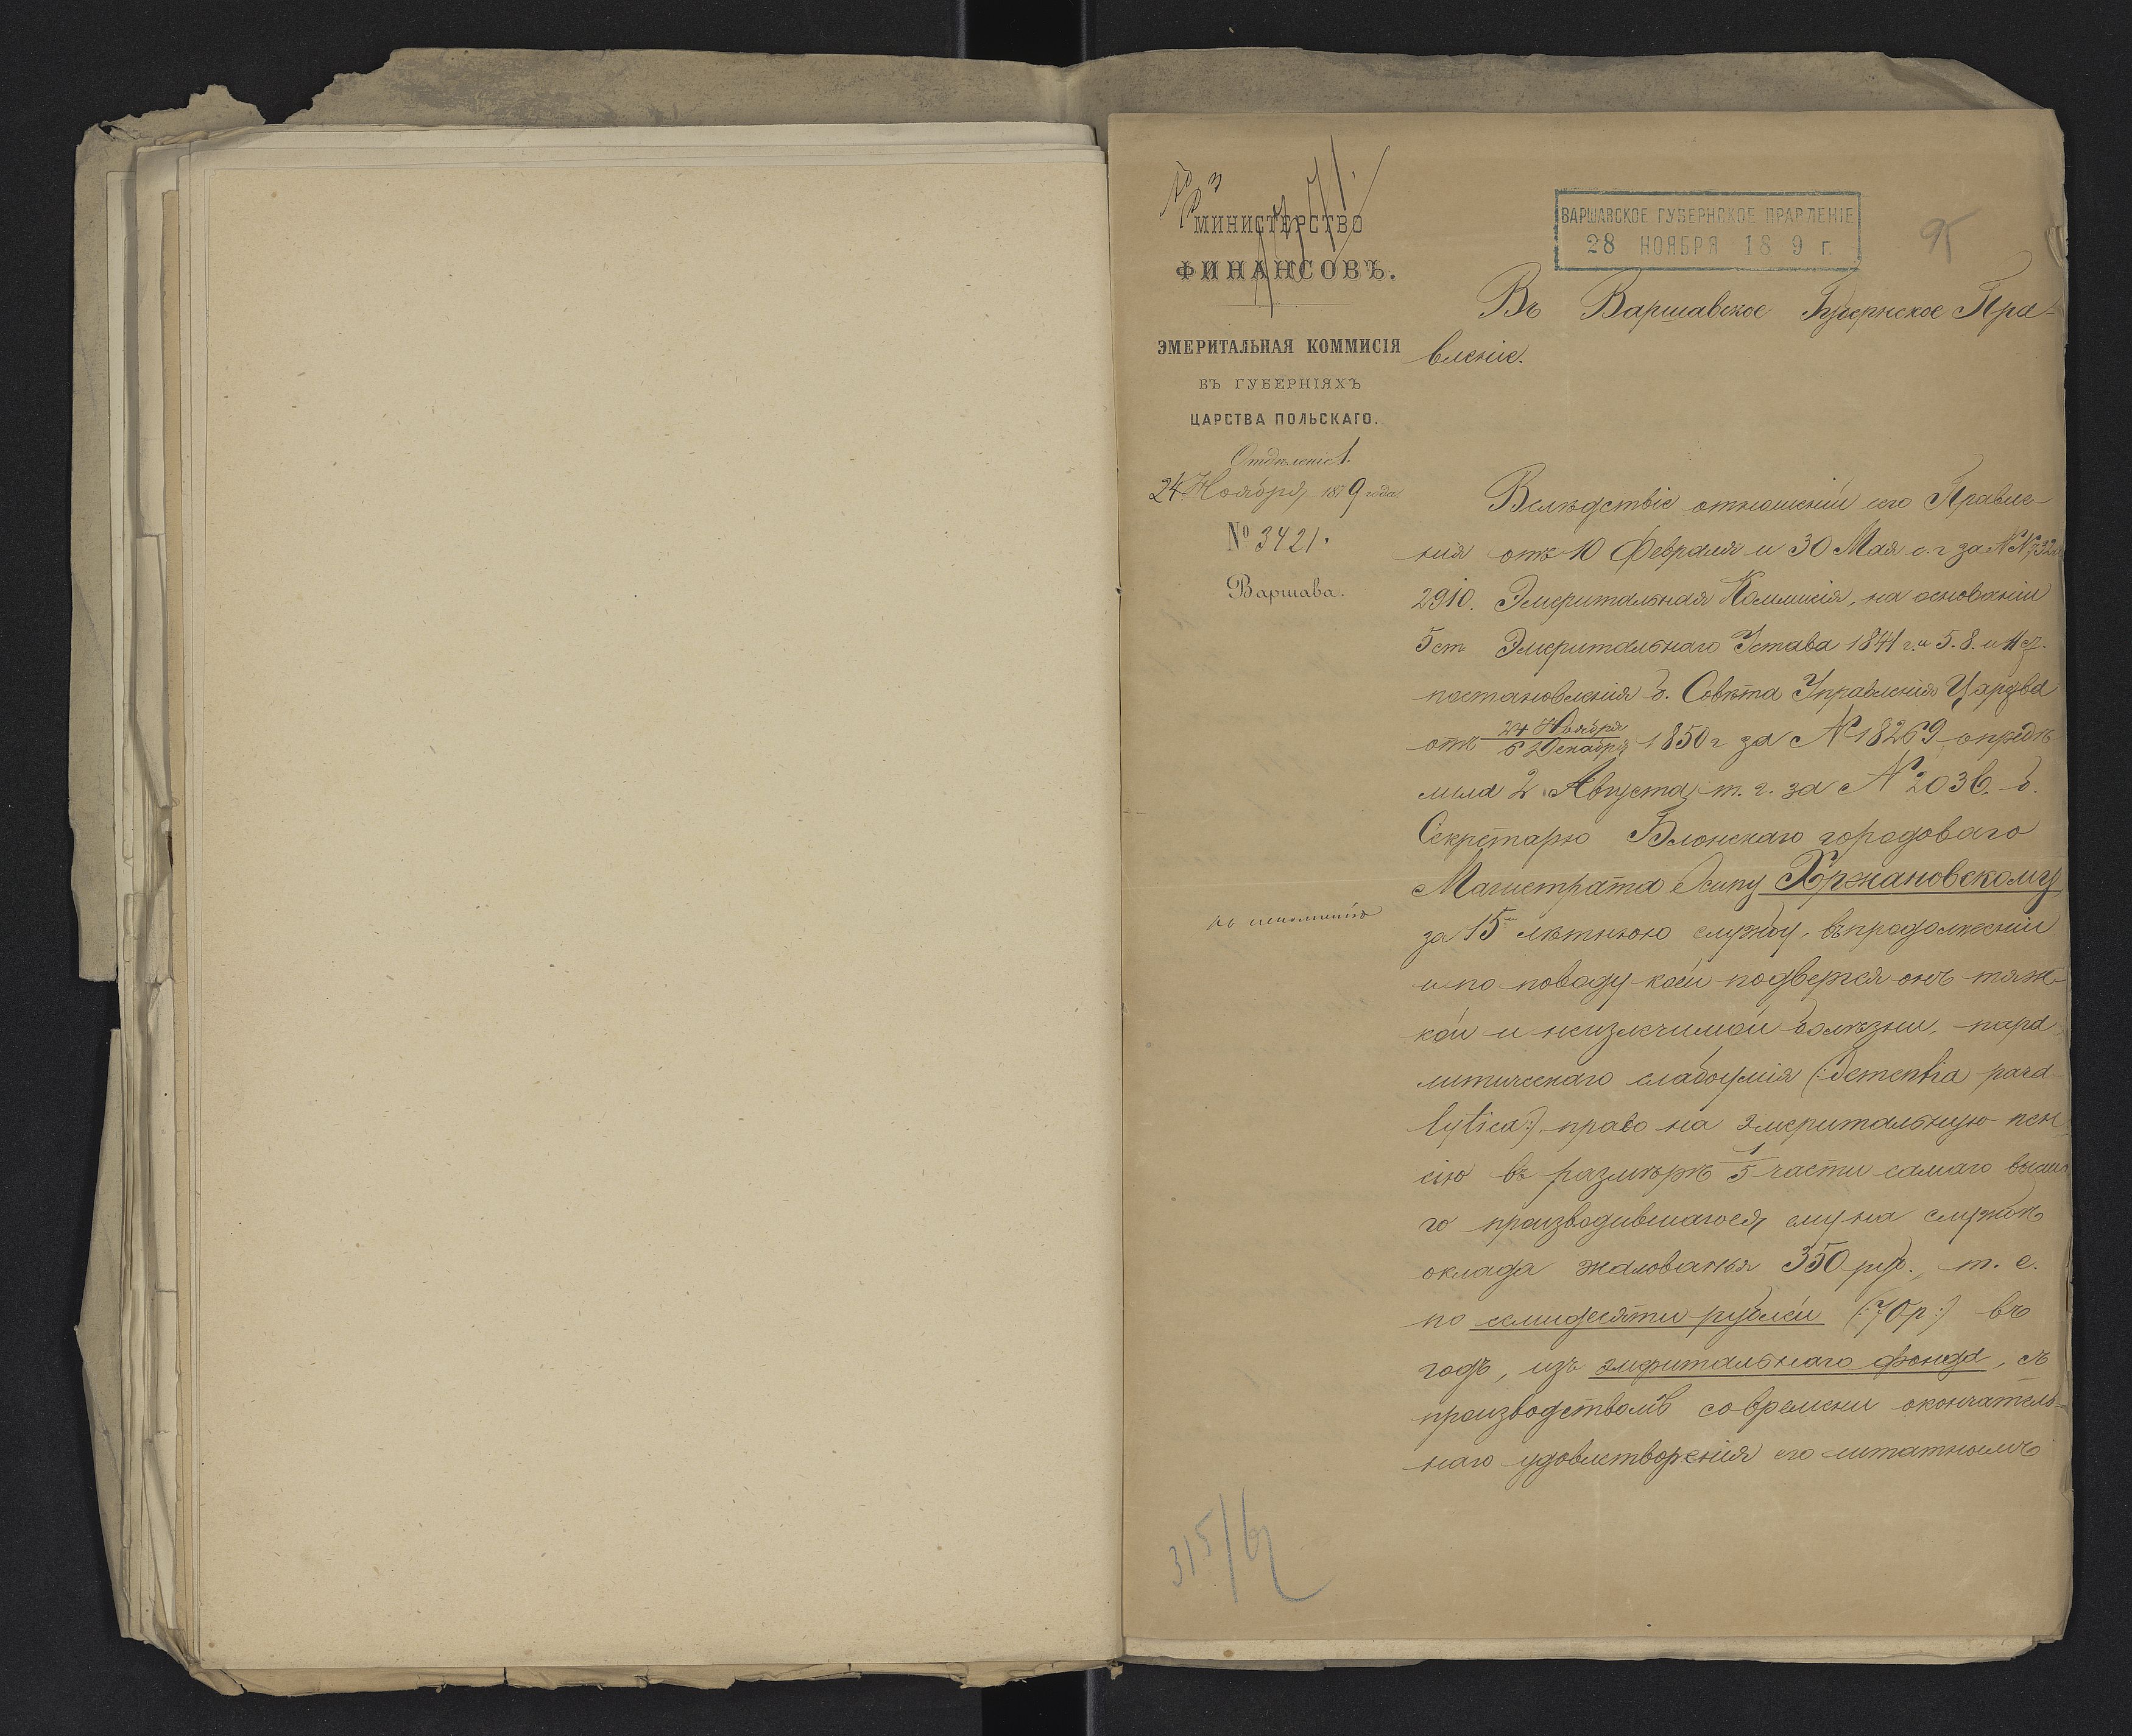 МИНИСТЕРСТВО
ФИНАНСОВЪ.
ЭМЕРИТАЛЬНАЯ КОММИСІЯ
ВЪ ГУБЕРНІЯХЪ
ЦАРСТВА ПОЛЬСКАГО.
Отдѣленіе 1.
24 Ноября 1879 года
№ 3421.
Варшава.
ВАРШАВСКОЕ ГУБЕРНСКОЕ ПРАВЛЕНІЕ
28 НОЯБРЯ 18 9 г.
95
Въ Варшавское Губернское Пра-
вленіе.
Вслѣдствіе отношеній сего Правле-
нія отъ 10 Февраля и 30 Мая с. г. за №№ 732 и
2910. Эмеритальная Коммисія, на основаніи
5 ст. Эмеритальнаго Устава 1841 г. и 5. 8. и 11 ст.
постановленія б. Совѣта Управленія Царства
отъ 24 Ноября / 6 Декабря 1850 г. за № 18269 опредѣ
лила 2 Августа т. г. за № 2036. б.
Секретарю Блонскаго городоваго
Магистрата Осипу Хржановскому
за 15 лѣтнюю службу, въ продолженіи
и по поводу коей подвергся онъ тяж-
кой и неизлечимой болѣзни, пара
литическаго слабоумія (: Dementia para-
lytica :), право на эмеритальную пен
сію въ размѣрѣ 1/5 части самаго высша
го производившагося ему на службѣ
оклада жалованья 350 руб., т. е.
по семидесяти рублей (: 70 р :) въ
годъ, изъ эмеритальнаго фонда, съ
производствомъ со времени окончатель-
наго удовлетворенія его штатнымъ
315/